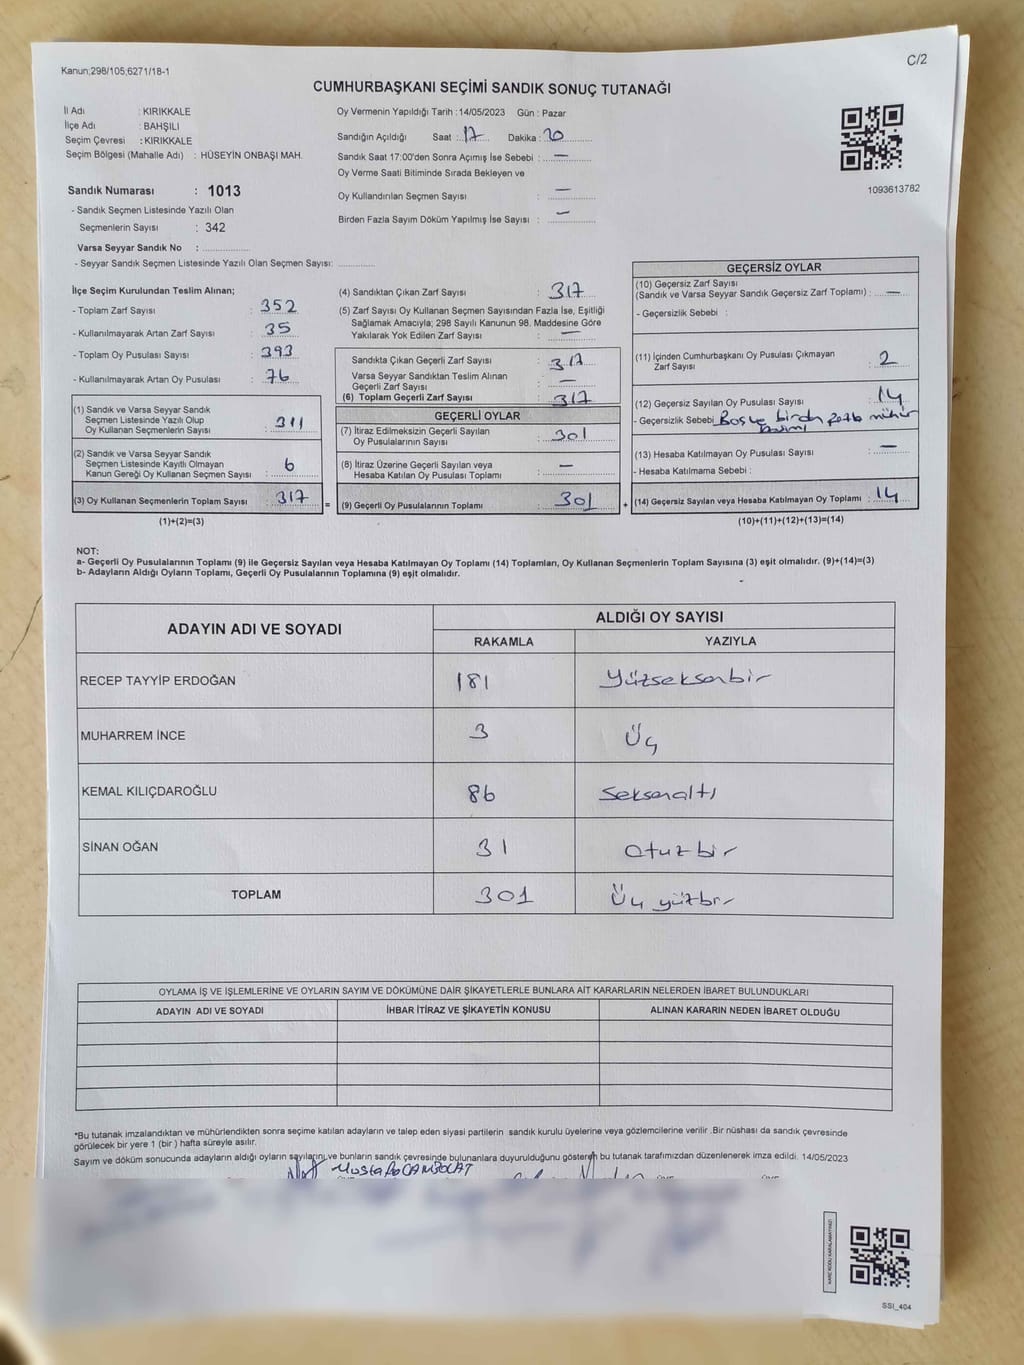 C/2
Kanun;298/105;6271/18-1
CUMHURBAŞKANI SEÇİMİ SANDIK SONUÇ TUTANAĞI
İl Adı : KIRIKKALE
İlçe Adı : BAHŞILI
Seçim Çevresi : KIRIKKALE
Seçim Bölgesi (Mahalle Adı) : HÜSEYİN ONBAŞI MAH.
Sandık Numarası : 1013
- Sandık Seçmen Listesinde Yazılı Olan
Seçmenlerin Sayısı : 342
Varsa Seyyar Sandık No : ................
- Seyyar Sandık Seçmen Listesinde Yazılı Olan Seçmen Sayısı: ............
Oy Vermenin Yapıldığı Tarih : 14/05/2023 Gün : Pazar
Sandığın Açıldığı Saat : 17 Dakika : 20
Sandık Saat 17:00'den Sonra Açımış İse Sebebi : —
Oy Verme Saati Bitiminde Sırada Bekleyen ve
Oy Kullandırılan Seçmen Sayısı —
Birden Fazla Sayım Döküm Yapılmış İse Sayısı : —
1093613782
İlçe Seçim Kurulundan Teslim Alınan;
- Toplam Zarf Sayısı : 352
- Kullanılmayarak Artan Zarf Sayısı : 35
- Toplam Oy Pusulası Sayısı : 393
- Kullanılmayarak Artan Oy Pusulası : 76
(1) Sandık ve Varsa Seyyar Sandık
Seçmen Listesinde Yazılı Olup
Oy Kullanan Seçmenlerin Sayısı : 311
(2) Sandık ve Varsa Seyyar Sandık
Seçmen Listesinde Kayıtlı Olmayan
Kanun Gereği Oy Kullanan Seçmen Sayısı : 6
(3) Oy Kullanan Seçmenlerin Toplam Sayısı : 317
(1)+(2)=(3)
(4) Sandıktan Çıkan Zarf Sayısı : 317
(5) Zarf Sayısı Oy Kullanan Seçmen Sayısından Fazla İse, Eşitliği
Sağlamak Amacıyla; 298 Sayılı Kanunun 98. Maddesine Göre
Yakılarak Yok Edilen Zarf Sayısı : —
Sandıkta Çıkan Geçerli Zarf Sayısı : 317
Varsa Seyyar Sandıktan Teslim Alınan
Geçerli Zarf Sayısı : —
(6) Toplam Geçerli Zarf Sayısı : 317
GEÇERLİ OYLAR
(7) İtiraz Edilmeksizin Geçerli Sayılan
Oy Pusulalarının Sayısı : 301
(8) İtiraz Üzerine Geçerli Sayılan veya
Hesaba Katılan Oy Pusulası Toplamı : —
= (9) Geçerli Oy Pusulalarının Toplamı : 301 +
GEÇERSİZ OYLAR
(10) Geçersiz Zarf Sayısı
(Sandık ve Varsa Seyyar Sandık Geçersiz Zarf Toplamı) : —
- Geçersizlik Sebebi :
(11) İçinden Cumhurbaşkanı Oy Pusulası Çıkmayan
Zarf Sayısı : 2
(12) Geçersiz Sayılan Oy Pusulası Sayısı : 14
- Geçersizlik Sebebi : Boş ve birden fazla mühür
basımı
(13) Hesaba Katılmayan Oy Pusulası Sayısı : —
- Hesaba Katılmama Sebebi :
(14) Geçersiz Sayılan veya Hesaba Katılmayan Oy Toplamı : 14
(10)+(11)+(12)+(13)=(14)
NOT:
a- Geçerli Oy Pusulalarının Toplamı (9) ile Geçersiz Sayılan veya Hesaba Katılmayan Oy Toplamı (14) Toplamları, Oy Kullanan Seçmenlerin Toplam Sayısına (3) eşit olmalıdır. (9)+(14)=(3)
b- Adayların Aldığı Oyların Toplamı, Geçerli Oy Pusulalarının Toplamına (9) eşit olmalıdır.
ADAYIN ADI VE SOYADI ALDIĞI OY SAYISI
RAKAMLA YAZIYLA
RECEP TAYYİP ERDOĞAN 181 Yüzseksenbir
MUHARREM İNCE 3 Üç
KEMAL KILIÇDAROĞLU 86 Seksenaltı
SİNAN OĞAN 31 Otuzbir
TOPLAM 301 Üç yüzbir
OYLAMA İŞ VE İŞLEMLERİNE VE OYLARIN SAYIM VE DÖKÜMÜNE DAİR ŞİKAYETLERLE BUNLARA AİT KARARLARIN NELERDEN İBARET BULUNDUKLARI
ADAYIN ADI VE SOYADI İHBAR İTİRAZ VE ŞİKAYETİN KONUSU ALINAN KARARIN NEDEN İBARET OLDUĞU
*Bu tutanak imzalandıktan ve mühürlendikten sonra seçime katılan adayların ve talep eden siyasi partilerin sandık kurulu üyelerine veya gözlemcilerine verilir .Bir nüshası da sandık çevresinde
görülecek bir yere 1 (bir ) hafta süreyle asılır.
Sayım ve döküm sonucunda adayların aldığı oyların sayılarını ve bunların sandık çevresinde bulunanlara duyurulduğunu gösteren bu tutanak tarafımızdan düzenlenerek imza edildi. 14/05/2023
Mustafa CANBOLAT
KARE KODU KARALAMAYINIZ!
SSI_404